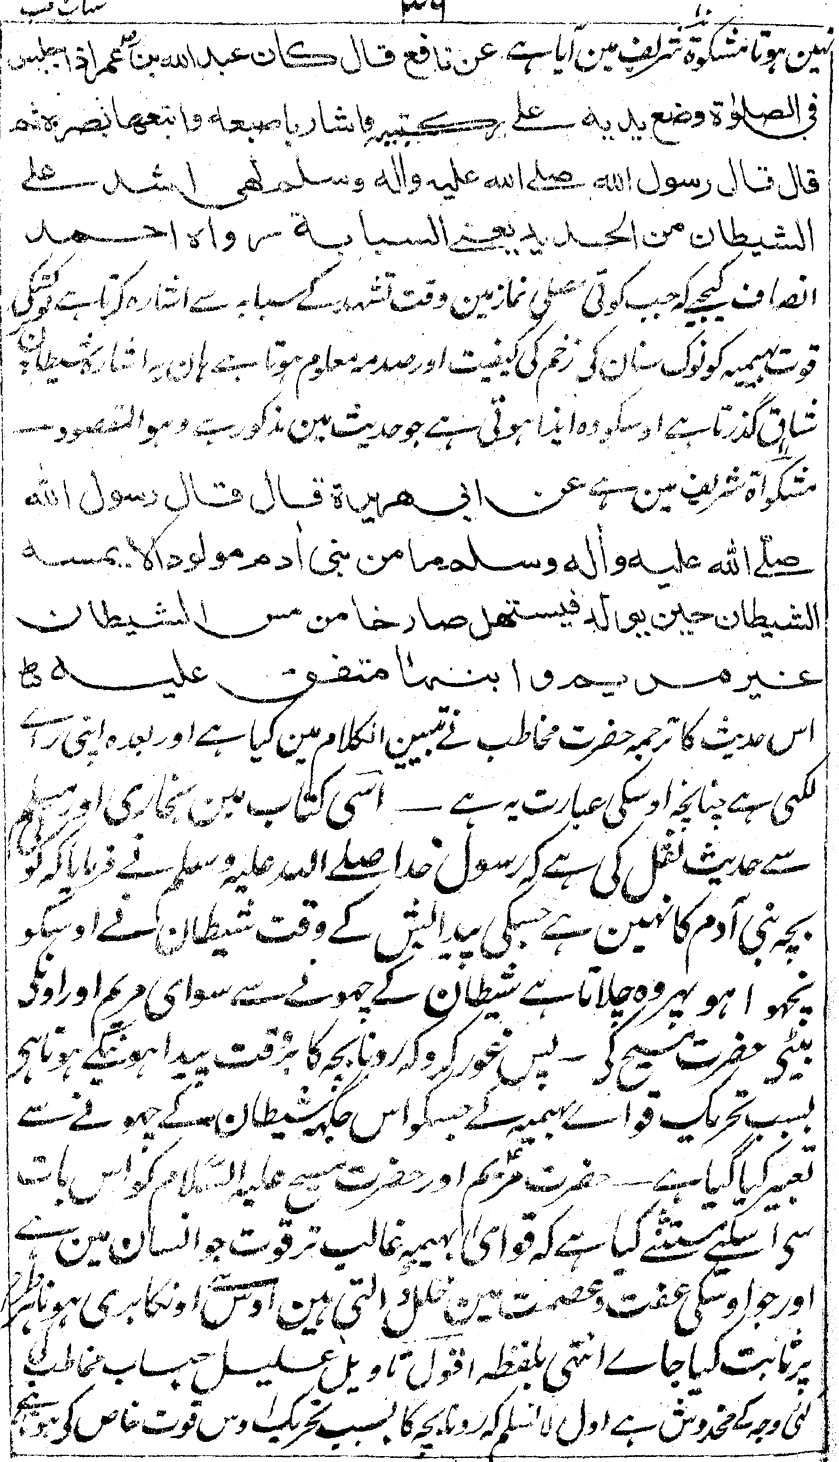 نہین ہوتا مشکوٰۃ شریف مین آیا ہے عن نافع قال کان عبد اللہ بن عمر اذا جلس
فی الصلوٰۃ وضع یدیہ علی رکبتیہ واشار باصبعہ واتبعھا بصرہ ثم
قال قال رسول اللہ صلے اللہ علیہ وآلہ وسلم لھی اشد علی
الشیطان من الحدید یعنے السبابۃ رواہ احمد
انصاف کیجیے کہ جب کوئی مصلی نماز مین وقت تشہد کے سبابہ سے اشارہ کرتا ہے تو کسکی
قوت بہیمیہ کو نوک سنان کی زخم کی کیفیت اور صدمہ معلوم ہوتا ہے ہان یہ اشارہ شیطان پر
شاق گذرتا ہے اوسکو وہ ایذا ہوتی ہے جو حدیث مین مذکور ہے وہو المقصود —
مشکوٰۃ شریف مین ہے عن ابی ھریرۃ قال قال رسول اللہ
صلّے اللہ علیہ وآلہ وسلم ما من بنی آدم مولود الا یمسہ
الشیطان حین یولد فیستھل صارخا من مس الشیطان
غیر مریم وابنھا متفق علیہ
اس حدیث کا ترجمہ حضرت مخاطب نے تبیین الکلام مین کیا ہے اور بعدہ اپنی راے
لکھی ہے چنانچہ اوسکی عبارت یہ ہے — اسی کتاب مین بخاری اور مسلم
سے حدیث نقل کی ہے کہ رسول خدا صلے اللہ علیہ وسلم نے فرمایا کہ کوئی
بچہ بنی آدم کا نہین ہے جسکی پیدایش کے وقت شیطان نے اوسکو
نچھوا ہو پہر وہ چلاتا ہے شیطان کے چھونے سے سوای مریم اور اونکی
بیٹی حضرت مسیح کی — پس غور کرو کہ رونا بچہ کا بروقت پیدا ہونیکے ہوتا ہی
بسبب تحریک قواے بہیمیہ کے جسکو اس جگہہ شیطان کے چھونے سے
تعبیر کیا گیا ہے — حضرت مریم اور حضرت مسیح علیہ السلام کو اس بات
سی اسلیے مستثنے کیا ہے کہ قوای بہیمیہ غالب تر قوت جو انسان مین ہے
اور جو اوسکی عفت و عصمت مین خلل ڈالتی ہین اوس سے اونکا بری ہونا ہر طرح
پر ثابت کیا جاے انتہی بلفظہ اقول تاویل علیل جناب مخاطب کی
کئی وجہ سے مخدوش ہے اول لا نسلم کہ رونا بچہ کا بسبب تحریک اوس قوت خاص کی ہو